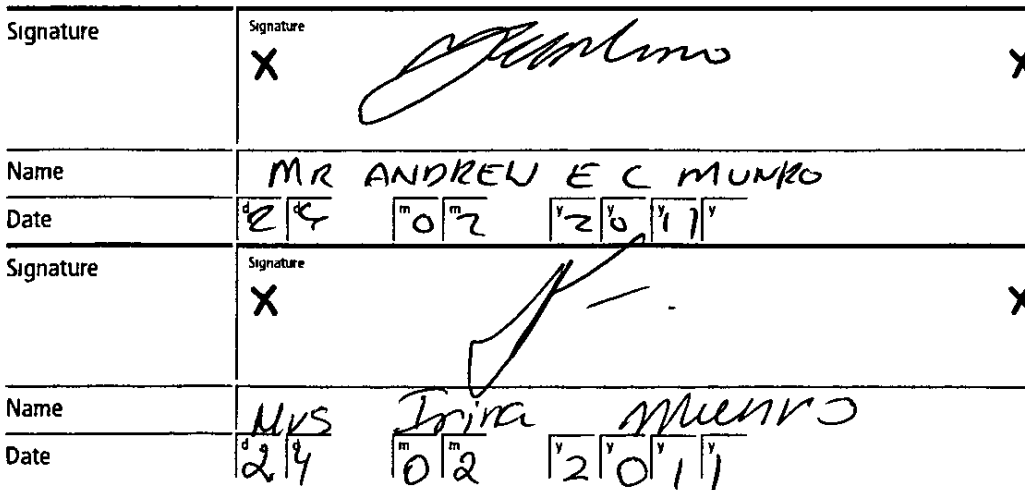 Signature Signature
X X
Name MR ANDREW E C MUNRO
Date d2 d4 m0 m2 y2 y0 y1 1 y
Signature Signature
X X
Name Mrs Irina Munro
Date d2 d4 m0 m2 y2 y0 y1 y1